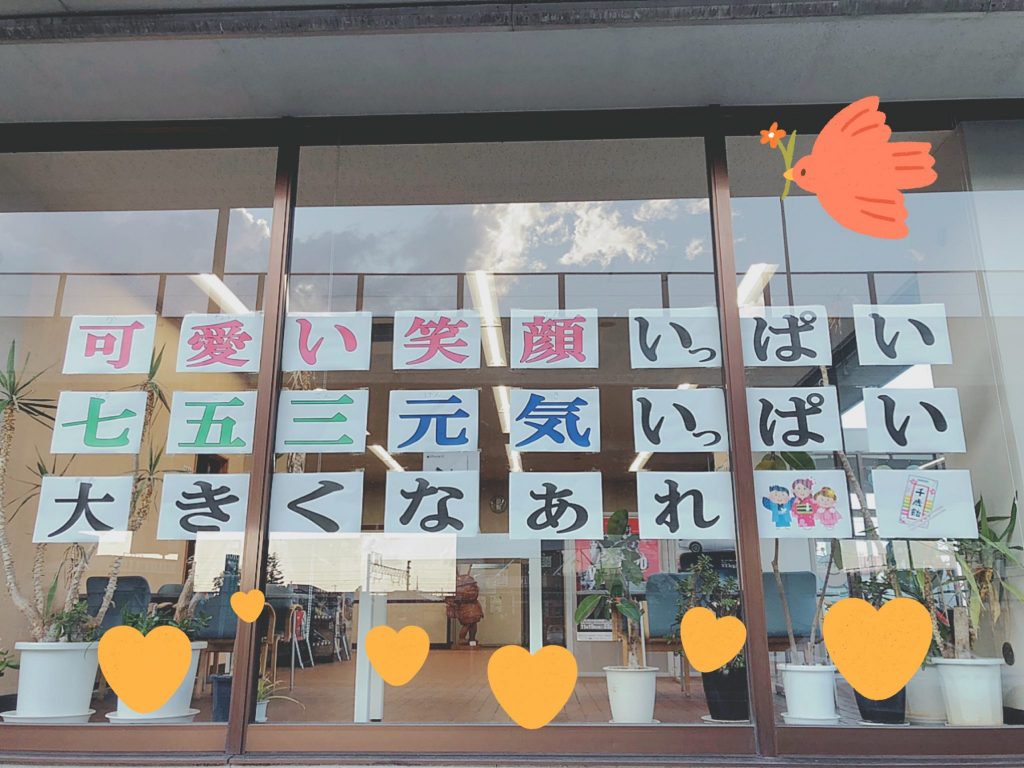 可愛い笑顔いっぱい
七五三元気いっぱい
大きくなあれ
千歳飴